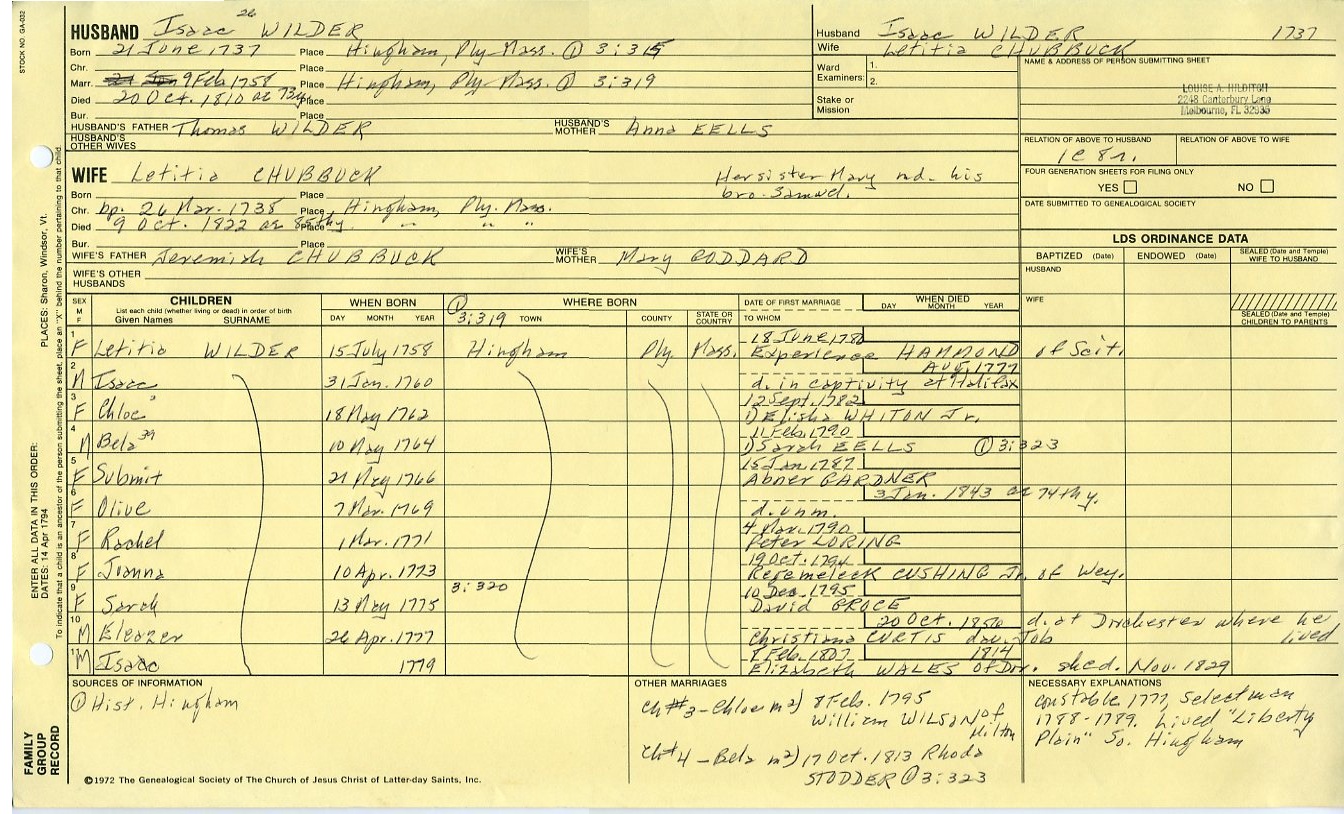 STOCK NO. GA-032
HUSBAND Isaac 26 WILDER
Born 21 June 1737 Place Hingham, Ply. Mass. ① 3:315
Chr. Place
Marr. 9 Feb 1758 Place Hingham, Ply. Mass. ① 3:319
Died 20 Oct. 1810 ae 73y Place
Bur. Place
HUSBAND'S FATHER Thomas WILDER HUSBAND'S MOTHER Anna EELLS
HUSBAND'S OTHER WIVES
Husband Isaac WILDER 1737
Wife Letitia CHUBBUCK
Ward Examiners: 1.
2.
Stake or Mission
NAME & ADDRESS OF PERSON SUBMITTING SHEET
LOUISE A. HILDITCH
2248 Canterbury Lane
Melbourne, FL 32935
RELATION OF ABOVE TO HUSBAND RELATION OF ABOVE TO WIFE
1c 8r.
FOUR GENERATION SHEETS FOR FILING ONLY
YES NO
DATE SUBMITTED TO GENEALOGICAL SOCIETY
WIFE Letitia CHUBBUCK
Her sister Mary md. his
bro. Samuel.
Born Place
Chr. bp. 26 Mar. 1738 Place Hingham, Ply. Mass.
Died 9 Oct. 1822 ae 85thy. Place " " "
Bur. Place
WIFE'S FATHER Jeremiah CHUBBUCK WIFE'S MOTHER Mary GODDARD
WIFE'S OTHER HUSBANDS
LDS ORDINANCE DATA
BAPTIZED (Date) ENDOWED (Date) SEALED (Date and Temple) WIFE TO HUSBAND
HUSBAND
WIFE
SEALED (Date and Temple) CHILDREN TO PARENTS
SEX M F
CHILDREN
List each child (whether living or dead) in order of birth
Given Names SURNAME
WHEN BORN
DAY MONTH YEAR
WHERE BORN
① 3:319 TOWN COUNTY STATE OR COUNTRY
DATE OF FIRST MARRIAGE
TO WHOM
WHEN DIED
DAY MONTH YEAR
1 F Letitia WILDER 15 July 1758 Hingham Ply. Mass. 18 June 1780
Experience HAMMOND of Scit.
2 M Isaac 31 Jan. 1760 Aug. 1777
d. in captivity at Halifax
3 F Chloe 18 May 1762 12 Sept. 1782
1) Elisha WHITON Jr.
4 M Bela 39 10 May 1764 11 Feb. 1790
1) Sarah EELLS ① 3:323
5 F Submit 21 May 1766 15 Jan 1787
Abner GARDNER
6 F Olive 7 Mar. 1769 3 Jan. 1843 ae 74thy.
d. unm.
7 F Rachel 1 Mar. 1771 4 Mar. 1790
Peter LORING
8 F Joanna 10 Apr. 1773 19 Oct. 1794
CUSHING Jr. of Wey.
9 F Sarah 13 May 1775 3:320 10 Dec. 1795
David GROCE
10 M Eleazer 26 Apr. 1777 20 Oct. 1856 d. at Dorchester where he lived
Christiana CURTIS dau. Job
11 M Isaac 1779 8 Feb. 1807 1814
Elizabeth WALES of Dor. shed. Nov. 1829
SOURCES OF INFORMATION
① Hist. Hingham
OTHER MARRIAGES
Ch #3 - Chloe m2) 8 Feb. 1795
William WILSON of
Milton
Ch #4 - Bela m2) 17 Oct. 1813 Rhoda
STODDER ① 3:323
NECESSARY EXPLANATIONS
Constable 1777, Selectman
1788-1789. Lived "Liberty
Plain" So. Hingham
©1972 The Genealogical Society of The Church of Jesus Christ of Latter-day Saints, Inc.
FAMILY GROUP RECORD
ENTER ALL DATA IN THIS ORDER:
DATES: 14 Apr 1794
PLACES: Sharon, Windsor, Vt.
To indicate that a child is an ancestor of the person submitting the sheet, place an "X" behind the number pertaining to that child.